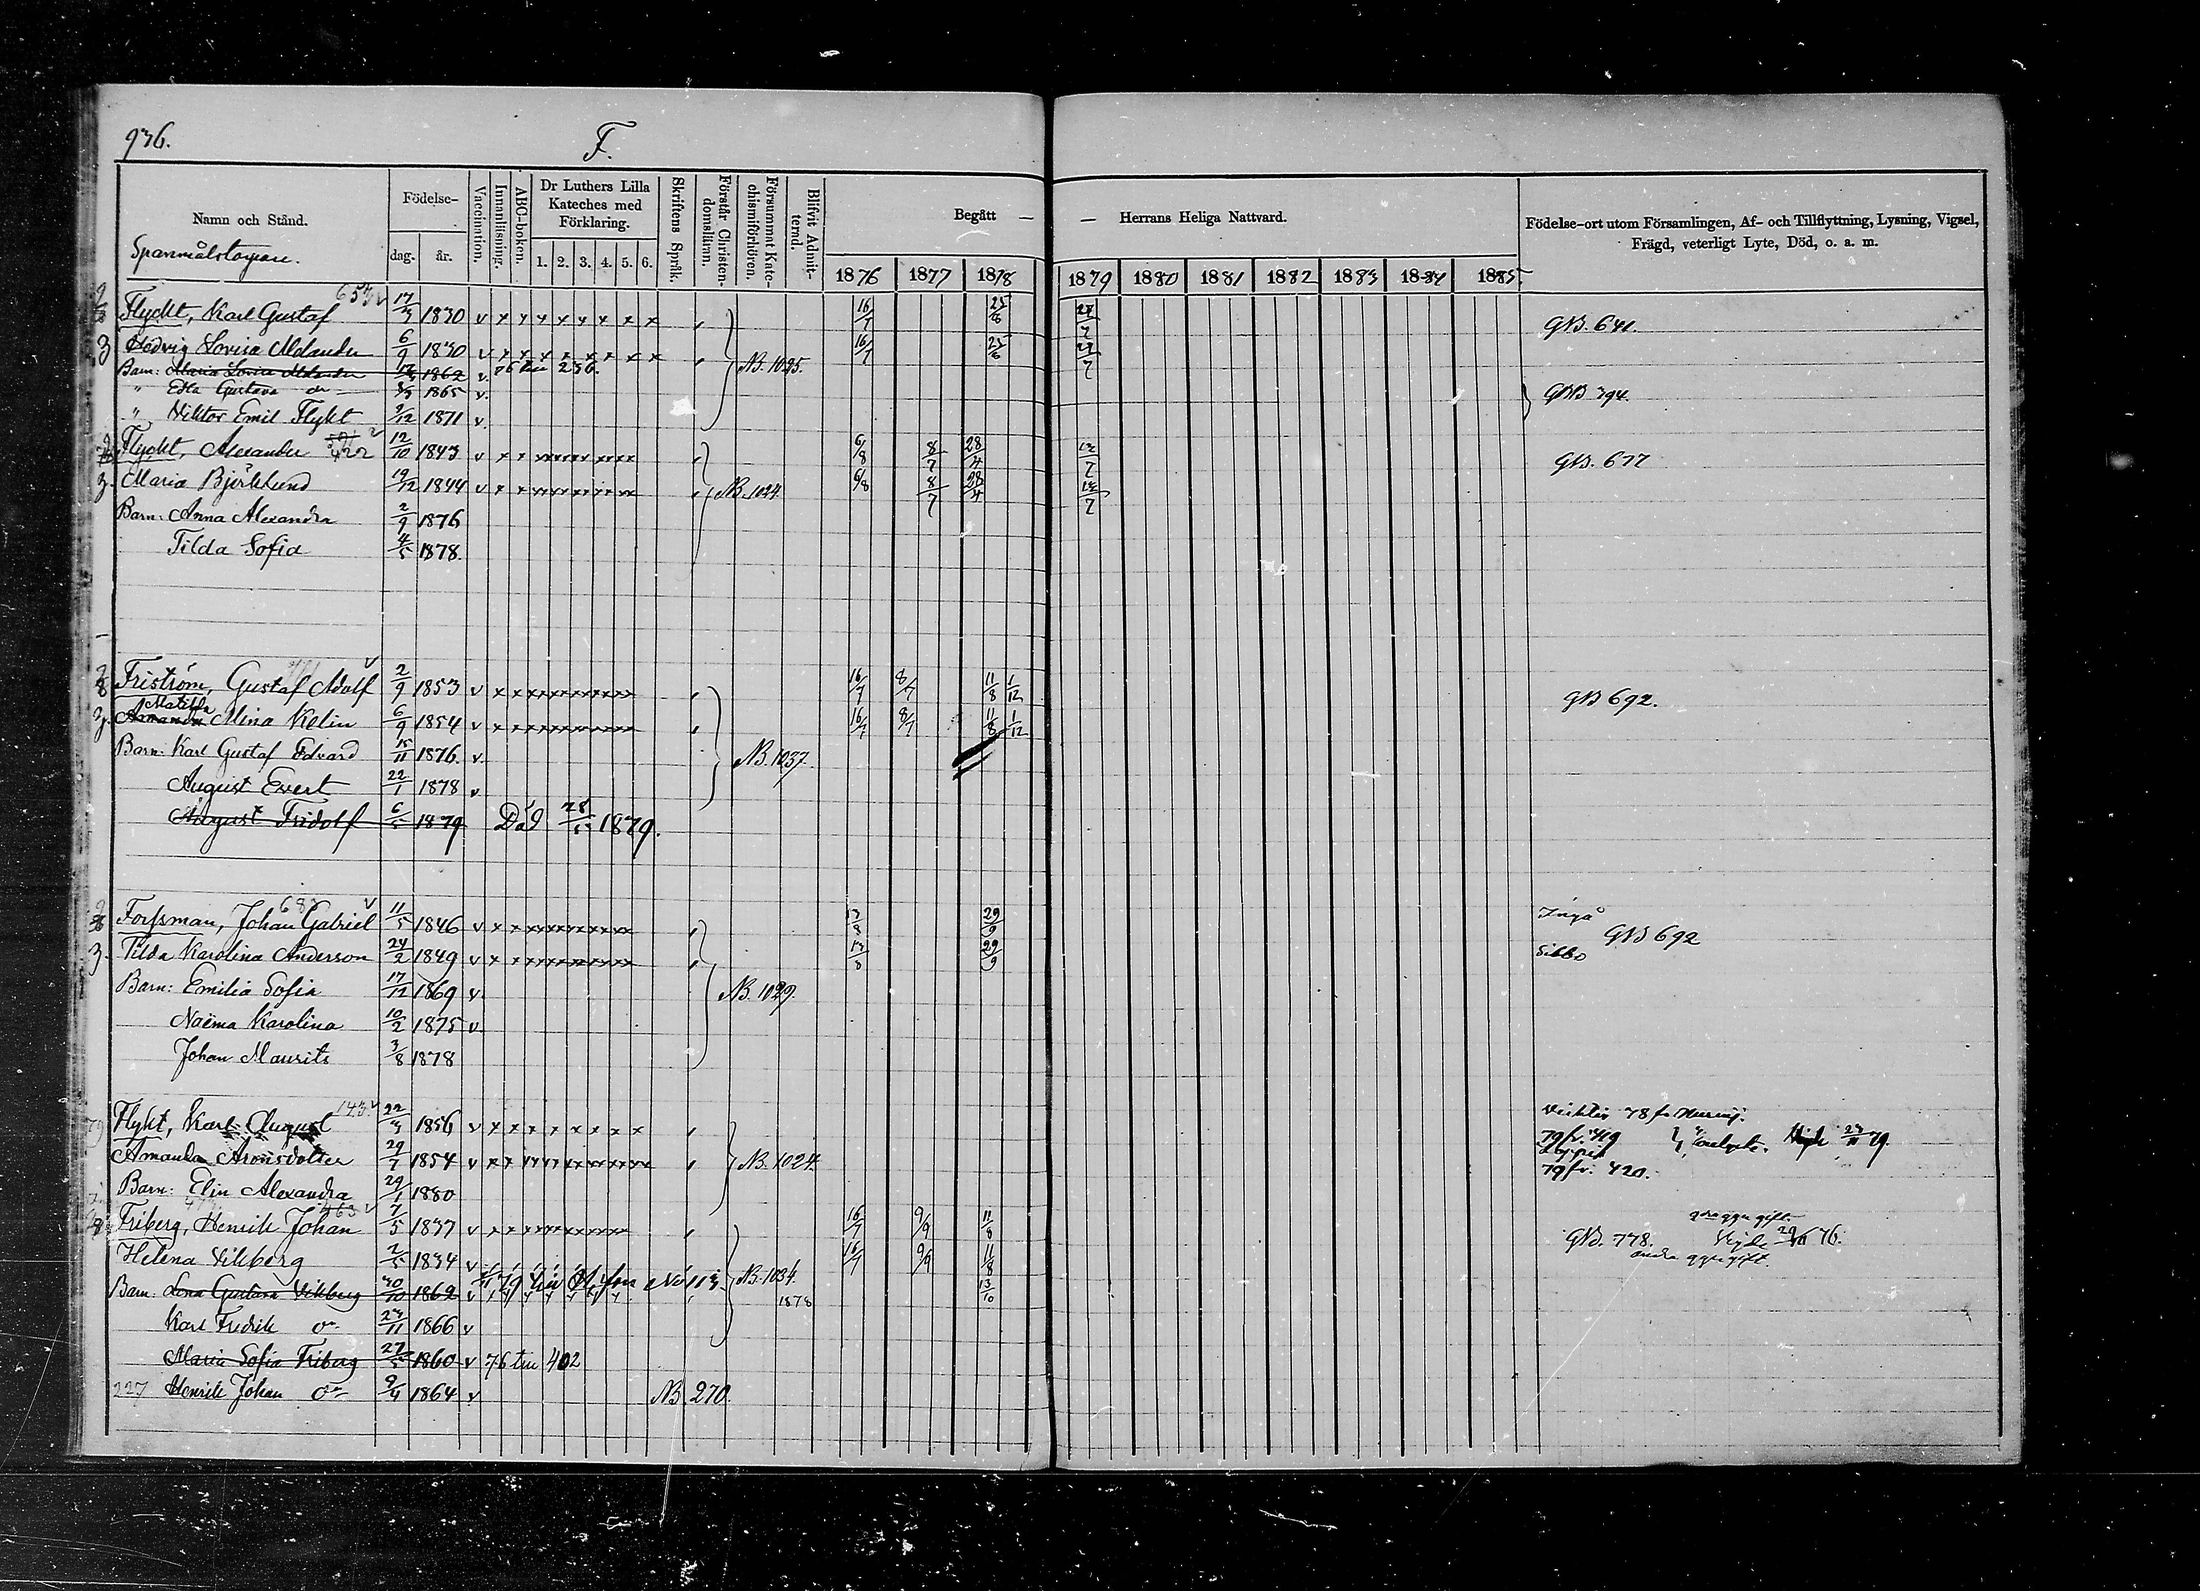 936.
F.
Namn och Stånd.
Spanmålstagare.
Födelse-
dag. år.
Vaccination.
Innanläsning.
ABC-boken.
Dr Luthers Lilla Kateches med Förklaring.
1. 2. 3. 4. 5. 6.
Skriftens Språk.
Förstår Christendomsläran.
Försummat Katechismiförhören.
Blifvit Admitterad.
Begått — — Herrans Heliga Nattvard.
1876 1877 1878 1879 1880 1881 1882 1883 1884 1885.
Födelse-ort utom Församlingen, Af- och Tillflyttning, Lysning, Vigsel,
Frägd, veterligt Lyte, Död, o. a. m.
Flyckt, Karl Gustaf 17/3 1830 v x x x x x x x x 16/7 25/8 GB. 641.
Hedvig Lovisa Melander 6/9 1830 v x x x x x x x x 16/7 NB. 1025.
Barn: Maria Lovisa Melander 1862 v. 76 236.
" Edla Gustava do 1865 v. GBB 394.
" Viktor Emil Flykt 9/12 1871 v
Flyckt, Alexander 422 12/10 1843 v 6/8 8/7 28/4 GB. 677
Maria Björklund 19/12 1844 v NB. 1024. 6/8 8/7 28/4
Barn: Anna Alexandra 2/9 1876
Tilda Sofia 4/5 1878.
Friström, Gustaf Adolf 2/9 1853 v 16/7 8/7 11/8 1/12 GB 692.
Matilda
Amanda Mina Kelin 6/9 1854 v 16/7 8/7 11/8 1/12
Barn: Karl Gustaf Edvard 15/11 1876. v NB. 1037.
August Evert 22/1 1878 v
August Fridolf 6/5 1879 Död 28/5 1879.
Forssman, Johan Gabriel 11/5 1846 v 13/8 29/9 Ingå
GB 692
Tilda Karolina Anderson 24/2 1849 v 13/8 29/9 Sibbo
Barn: Emilia Sofia 17/12 1869 v NB. 1029.
Naëma Karolina 10/2 1875 v
Johan Maurits 3/8 1878
Flykt, Karl August 143 v 22/3 1856 v x x x x x x x x
Amanda Aronsdotter 29/7 1854 v NB. 1024.
79 fr. 420.
Barn: Elin Alexandra 29/1 1880
Friberg, Henrik Johan 7/5 1837 v 16/7 9/9 11/8
GB. 778.
andra ggn gift.
Helena Vikberg 2/5 1834 v 16/7 9/9 11/8
Barn: Lena Gustava Vikberg 30/10 1862 v NB. 1034. 1878 13/10
Karl Fredrik do 23/11 1866 v
Maria Sofia Friberg 27/5 1860 v 76 till 402
227 Henrik Johan do 9/4 1864 v NB. 270.